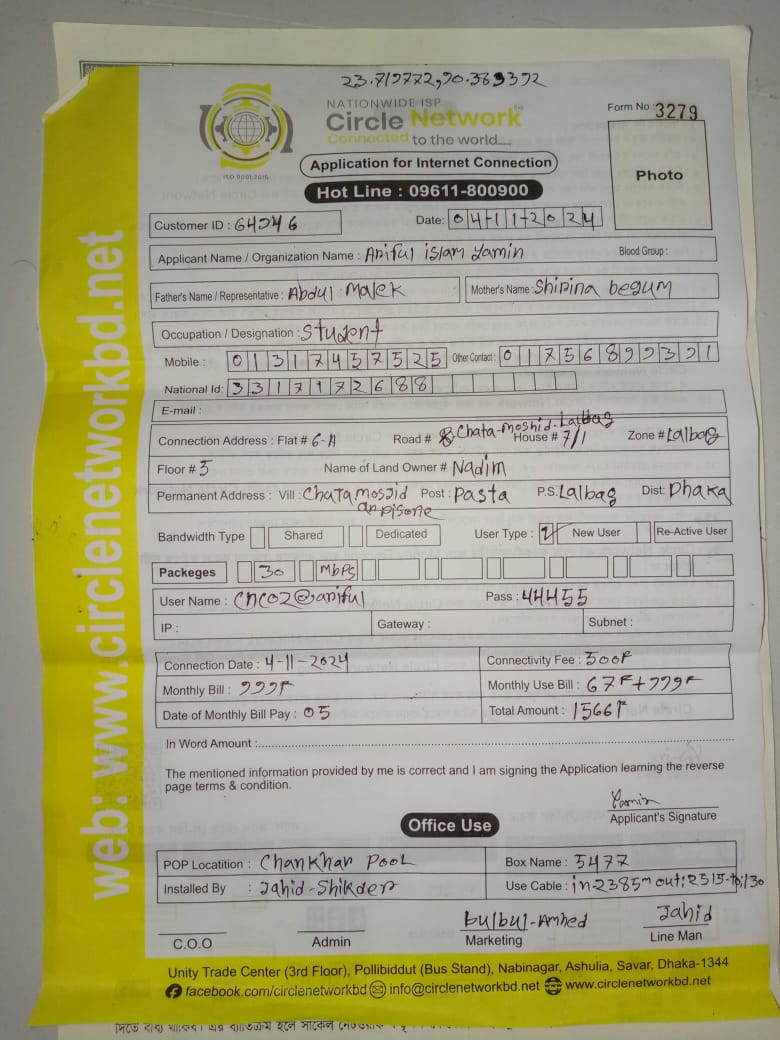 23.719772,90.383392
NATIONWIDE ISP
Circle Network
Connected to the world.....
ISO 9001:2015
Form No : 3279
Photo
Application for Internet Connection
Hot Line : 09611-800900
Customer ID : 64946 Date: 04-11-2024
Applicant Name / Organization Name : Ariful islam Yamin Blood Group :
Father's Name / Representative : Abdul Malek Mother's Name : Shirina begum
Occupation / Designation : Student
Mobile : 01317457525 Other Contact : 01756899391
National Id: 3317172688
E-mail :
Connection Address : Flat # 6-A Road # Chata-moshid-Lalbag House # 7/1 Zone # Lalbag
Floor # 5 Name of Land Owner # Nadim
Permanent Address : Vill : Chatamosjid Post : Pasta P.S. Lalbag Dist: Dhaka
Bandwidth Type Shared Dedicated User Type : New User Re-Active User
Packeges 30 Mbps
User Name : cnc02@ariful Pass : 44455
IP : Gateway : Subnet :
Connection Date : 4-11-2024 Connectivity Fee : 500৳
Monthly Bill : 999৳ Monthly Use Bill : 67৳+999৳
Date of Monthly Bill Pay : 05 Total Amount : 1566৳
In Word Amount :
The mentioned information provided by me is correct and I am signing the Application learning the reverse
page terms & condition.
Yamin
Applicant's Signature
Office Use
POP Locatition : Chankhar Pool Box Name : 5477
Installed By : Jahid-Shikder Use Cable : in-2385m out:2515-to:130
bulbul-Amhed Jahid
C.O.O Admin Marketing Line Man
Unity Trade Center (3rd Floor), Pollibiddut (Bus Stand), Nabinagar, Ashulia, Savar, Dhaka-1344
facebook.com/circlenetworkbd info@circlenetworkbd.net www.circlenetworkbd.net
web: www.circlenetworkbd.net